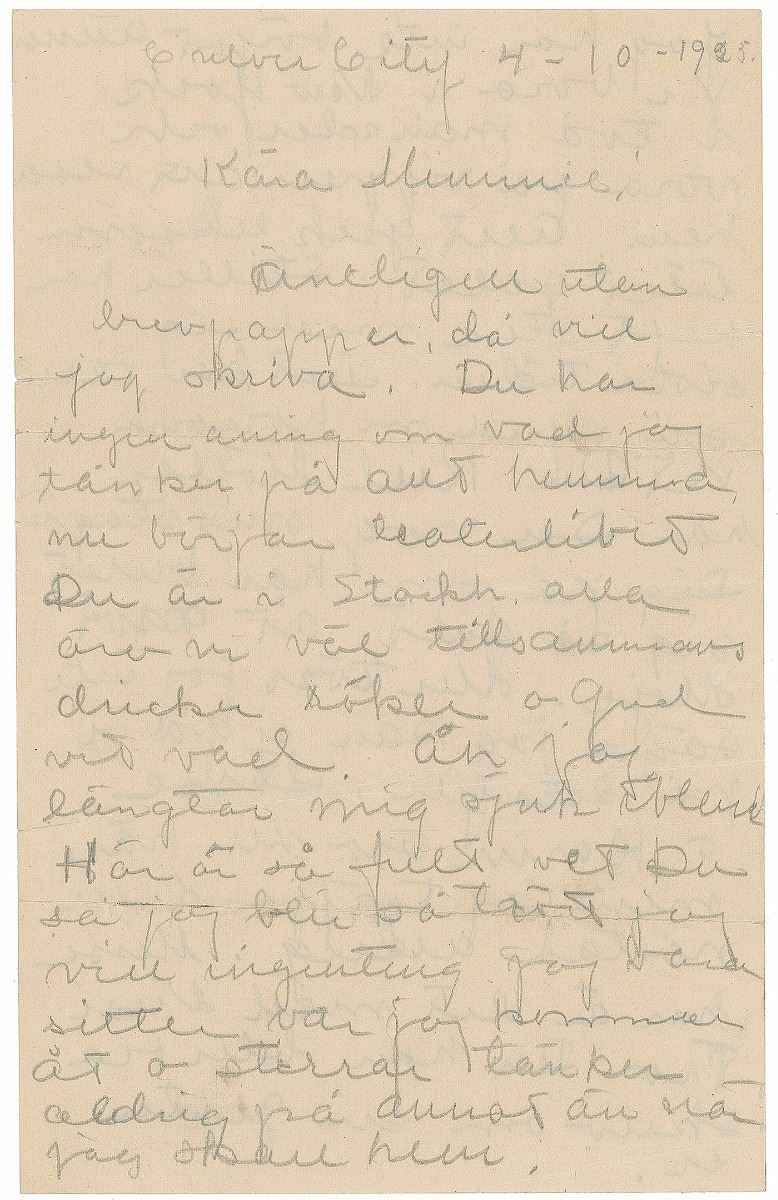 Culver City 4-10-1925.
Kära Mimmie,
Äntligen utan
brevpapper, då vill
jag skriva. Du har
ingen aning om vad jag
tänker på allt hemma,
nu börjar teaterlivet
Du är i Stockh. alla
äro ni väl tillsammans
dricker röker o Gud
vet vad. Åh jag
längtar mig sjuk ibland
Här är så fult vet Du
så jag blir så trött jag
vill ingenting jag bara
sitter var jag kommer
åt o stirrar tänker
aldrig på annat än när
jag skall hem.